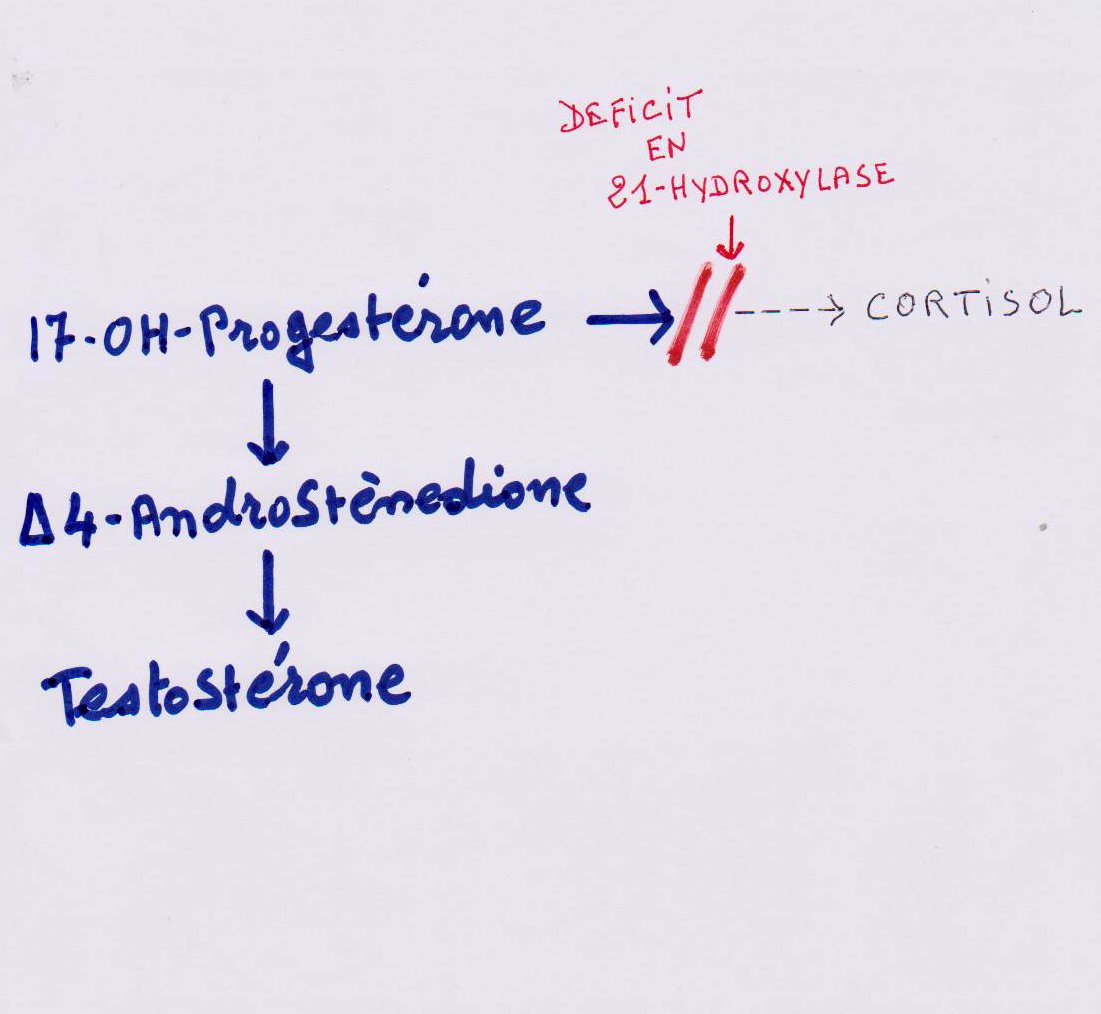 DEFICIT
EN
21-HYDROXYLASE
17-OH-Progestérone
CORTISOL
Δ4-Androstènedione
Testostérone